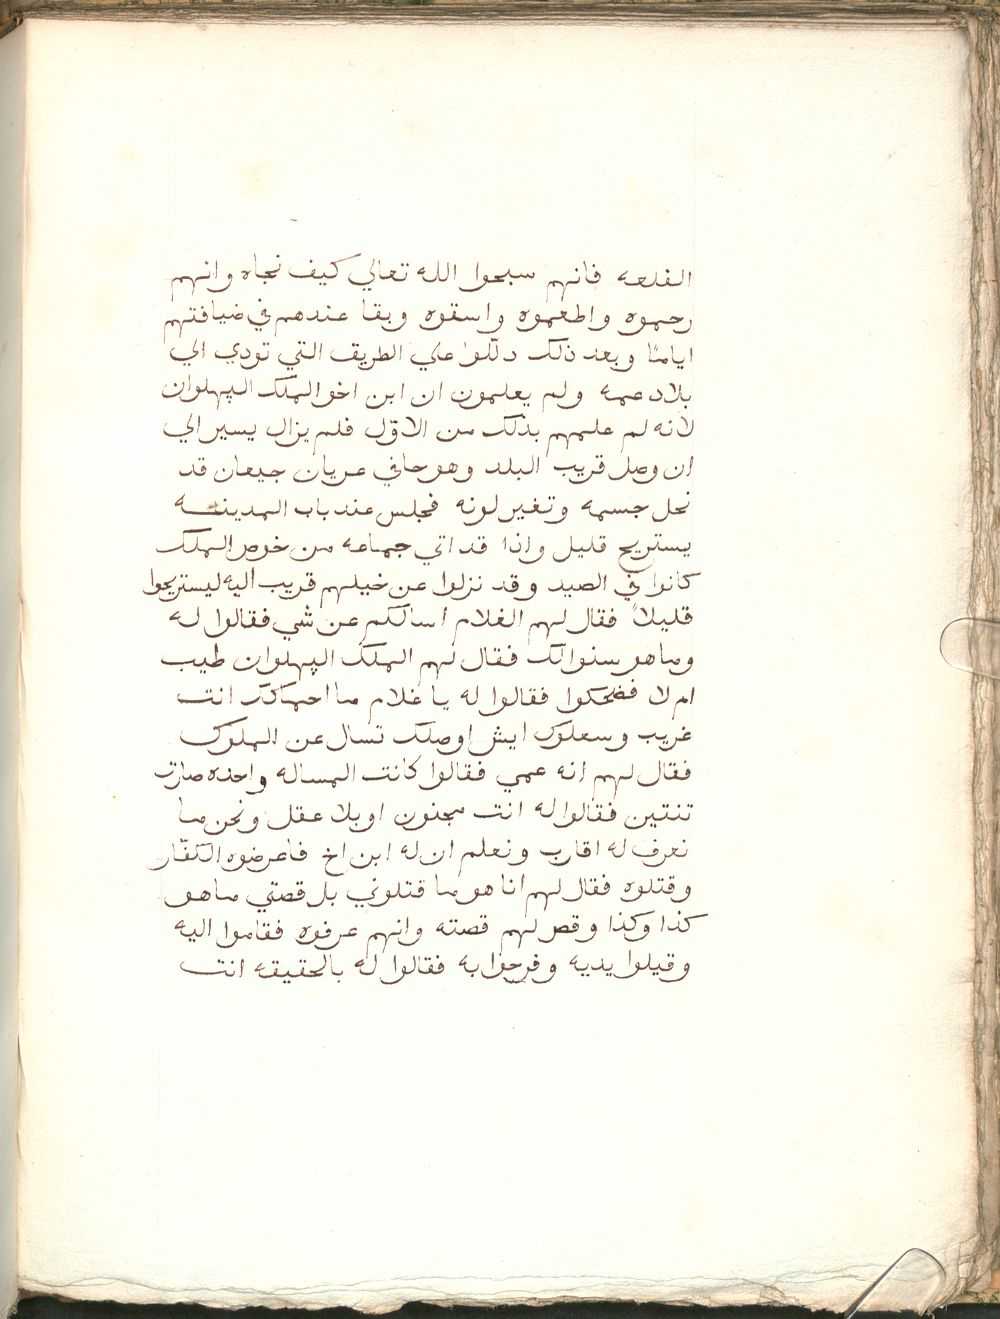 القلعه فانهم سبحوا الله تعالي كيف نجاه وانهم
رحموه واطعموه واسقوه وبقا عندهم في ضيافتهم
اياماً وبعد ذلك دلّلوا علي الطريق التي تودي الي
بلاد عمه ولم يعلمون ان ابن اخو الملك البهلوان
لانه لم علمهم بذلك من الاوّل فلم يزال يسير الي
ان وصل قريب البلد وهو حافي عريان جيعان قد
نحل جسمه وتغير لونه فجلس عند باب المدينه
يستريح قليل واذا قد اتي جماعه من خوص الملك
كانوا في الصيد وقد نزلوا عن خيلهم قريب اليه ليستريحوا
قليلاً فقال لهم الغلام اسالكم عن شي فقالوا له
وما هو سنوالك فقال لهم الملك البهلوان طيب
ام لا فضحكوا فقالوا له يا غلام ما احماكك انت
غريب وسعلوك ايش اوصلك تسال عن الملوك
فقال لهم انه عمي فقالوا كانت المساله واحده صارت
تنتين فقالوا له انت مجنون او بلا عقل ونحن ما
نعرف له اقارب ونعلم ان له ابن اخ فاعرضوه الكفّار
وقتلوه فقال لهم انا هو ما قتلوني بل قصتي ما هو
كذا وكذا وقص لهم قصته وانهم عرفوه فقاموا اليه
وقبلوا يديه وفرحوا به فقالوا له بالحقيقه انت